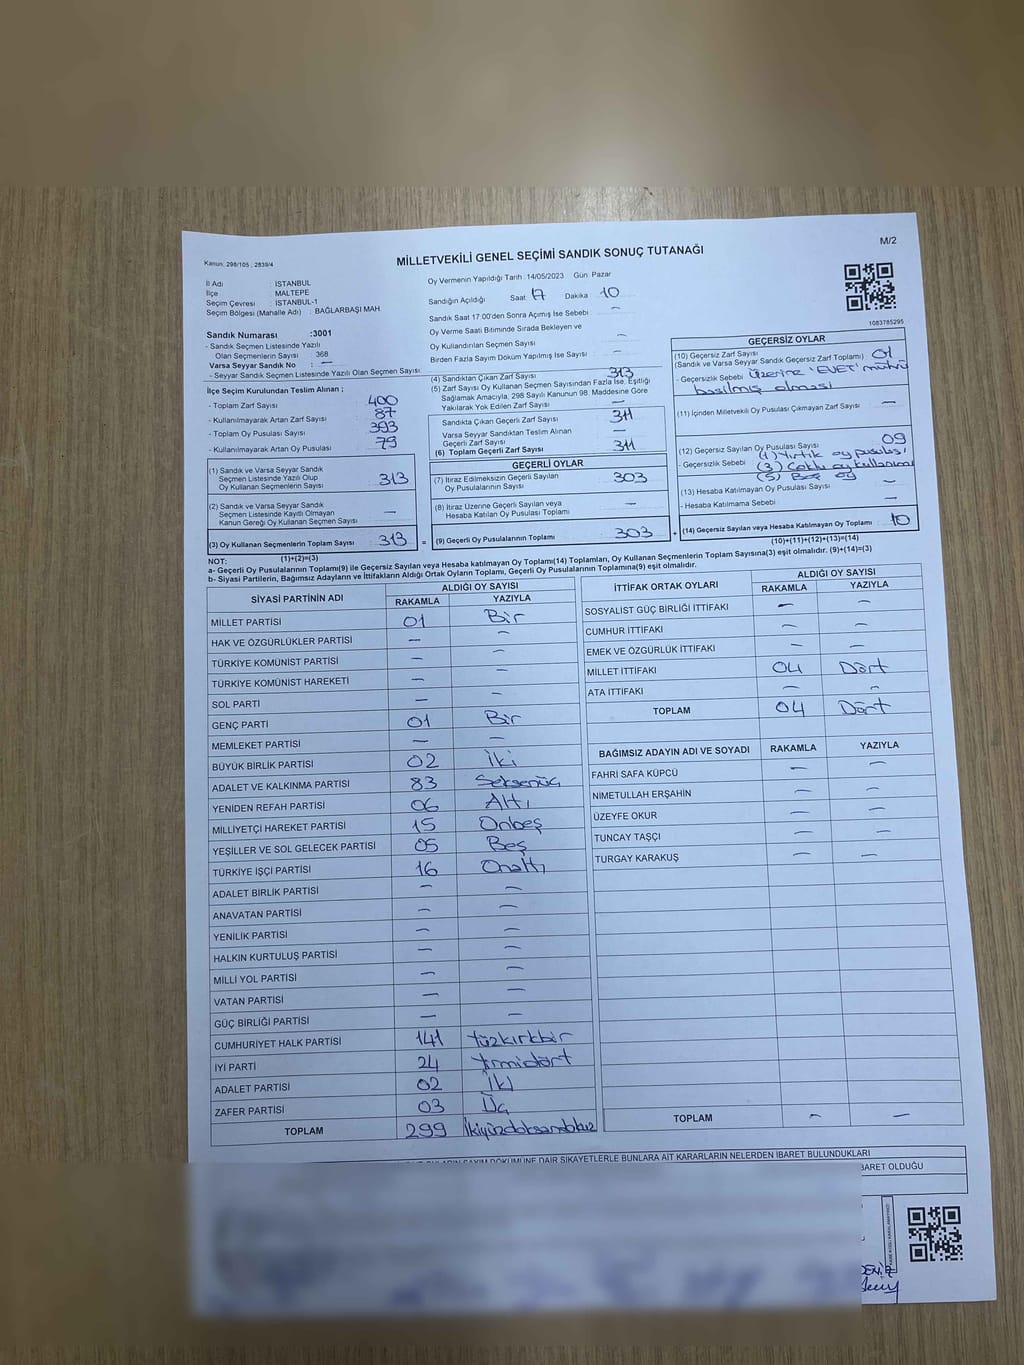 M/2
Kanun, 298/105 ; 2839/4
MİLLETVEKİLİ GENEL SEÇİMİ SANDIK SONUÇ TUTANAĞI
İl Adı : İSTANBUL
İlçe : MALTEPE
Seçim Çevresi : İSTANBUL-1
Seçim Bölgesi (Mahalle Adı) : BAĞLARBAŞI MAH.
Sandık Numarası :3001
- Sandık Seçmen Listesinde Yazılı
Olan Seçmenlerin Sayısı 368
Varsa Seyyar Sandık No : —
- Seyyar Sandık Seçmen Listesinde Yazılı Olan Seçmen Sayısı
Oy Vermenin Yapıldığı Tarih :14/05/2023 Gün: Pazar
Sandığın Açıldığı Saat 17 Dakika 10
Sandık Saat 17:00'den Sonra Açımış İse Sebebi —
Oy Verme Saati Bitiminde Sırada Bekleyen ve
Oy Kullandırılan Seçmen Sayısı —
Birden Fazla Sayım Döküm Yapılmış İse Sayısı —
1083785295
İlçe Seçim Kurulundan Teslim Alınan ;
- Toplam Zarf Sayısı 400
- Kullanılmayarak Artan Zarf Sayısı 87
- Toplam Oy Pusulası Sayısı 393
- Kullanılmayarak Artan Oy Pusulası 79
(1) Sandık ve Varsa Seyyar Sandık
Seçmen Listesinde Yazılı Olup
Oy Kullanan Seçmenlerin Sayısı 313
(2) Sandık ve Varsa Seyyar Sandık
Seçmen Listesinde Kayıtlı Olmayan
Kanun Gereği Oy Kullanan Seçmen Sayısı —
(3) Oy Kullanan Seçmenlerin Toplam Sayısı 313 =
(1)+(2)=(3)
(4) Sandıktan Çıkan Zarf Sayısı 313
(5) Zarf Sayısı Oy Kullanan Seçmen Sayısından Fazla İse, Eşitliği
Sağlamak Amacıyla, 298 Sayılı Kanunun 98. Maddesine Göre
Yakılarak Yok Edilen Zarf Sayısı —
Sandıkta Çıkan Geçerli Zarf Sayısı 311
Varsa Seyyar Sandıktan Teslim Alınan
Geçerli Zarf Sayısı —
(6) Toplam Geçerli Zarf Sayısı 311
GEÇERLİ OYLAR
(7) İtiraz Edilmeksizin Geçerli Sayılan
Oy Pusulalarının Sayısı 303
(8) İtiraz Üzerine Geçerli Sayılan veya
Hesaba Katılan Oy Pusulası Toplamı —
(9) Geçerli Oy Pusulalarının Toplamı 303 +
GEÇERSİZ OYLAR
(10) Geçersiz Zarf Sayısı
(Sandık ve Varsa Seyyar Sandık Geçersiz Zarf Toplamı) 01
- Geçersizlik Sebebi Üzerine 'EVET' mührü
basılmış olması
(11) İçinden Milletvekili Oy Pusulası Çıkmayan Zarf Sayısı —
(12) Geçersiz Sayılan Oy Pusulası Sayısı 09
- Geçersizlik Sebebi (1) Yırtık oy pusulası
(3) Çoklu oy kullanımı
(5) Boş oy
(13) Hesaba Katılmayan Oy Pusulası Sayısı —
- Hesaba Katılmama Sebebi —
(14) Geçersiz Sayılan veya Hesaba Katılmayan Oy Toplamı 10
(10)+(11)+(12)+(13)=(14)
NOT:
a- Geçerli Oy Pusulalarının Toplamı(9) ile Geçersiz Sayılan veya Hesaba katılmayan Oy Toplamı(14) Toplamları, Oy Kullanan Seçmenlerin Toplam Sayısına(3) eşit olmalıdır. (9)+(14)=(3)
b- Siyasi Partilerin, Bağımsız Adayların ve İttifakların Aldığı Ortak Oyların Toplamı, Geçerli Oy Pusulalarının Toplamına(9) eşit olmalıdır.
SİYASİ PARTİNİN ADI ALDIĞI OY SAYISI
RAKAMLA YAZIYLA
MİLLET PARTİSİ 01 Bir
HAK VE ÖZGÜRLÜKLER PARTİSİ — —
TÜRKİYE KOMÜNİST PARTİSİ — —
TÜRKİYE KOMÜNİST HAREKETİ — —
SOL PARTİ — —
GENÇ PARTİ 01 Bir
MEMLEKET PARTİSİ — —
BÜYÜK BİRLİK PARTİSİ 02 İki
ADALET VE KALKINMA PARTİSİ 83 Seksenüç
YENİDEN REFAH PARTİSİ 06 Altı
MİLLİYETÇİ HAREKET PARTİSİ 15 Onbeş
YEŞİLLER VE SOL GELECEK PARTİSİ 05 Beş
TÜRKİYE İŞÇİ PARTİSİ 16 Onaltı
ADALET BİRLİK PARTİSİ — —
ANAVATAN PARTİSİ — —
YENİLİK PARTİSİ — —
HALKIN KURTULUŞ PARTİSİ — —
MİLLİ YOL PARTİSİ — —
VATAN PARTİSİ — —
GÜÇ BİRLİĞİ PARTİSİ — —
CUMHURİYET HALK PARTİSİ 141 Yüzkırkbir
İYİ PARTİ 24 Yirmidört
ADALET PARTİSİ 02 İki
ZAFER PARTİSİ 03 Üç
TOPLAM 299 İkiyüzdoksandokuz
İTTİFAK ORTAK OYLARI ALDIĞI OY SAYISI
RAKAMLA YAZIYLA
SOSYALİST GÜÇ BİRLİĞİ İTTİFAKI — —
CUMHUR İTTİFAKI — —
EMEK VE ÖZGÜRLÜK İTTİFAKI — —
MİLLET İTTİFAKI 04 Dört
ATA İTTİFAKI — —
TOPLAM 04 Dört
BAĞIMSIZ ADAYIN ADI VE SOYADI RAKAMLA YAZIYLA
FAHRİ SAFA KÜPCÜ — —
NİMETULLAH ERŞAHİN — —
ÜZEYFE OKUR — —
TUNCAY TAŞÇI — —
TURGAY KARAKUŞ — —
TOPLAM — —
SAYIM DÖKÜMÜNE DAİR ŞİKAYETLERLE BUNLARA AİT KARARLARIN NELERDEN İBARET BULUNDUKLARI
BARET OLDUĞU